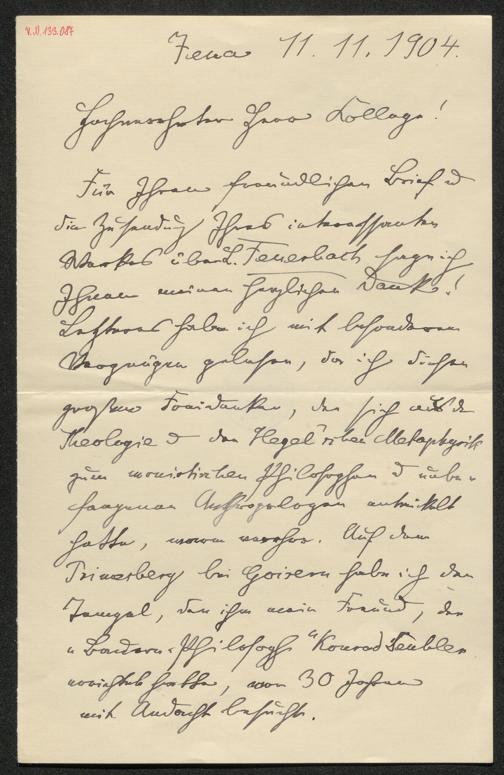 V.N. 133.087
Jena 11.11.1904.
Hochverehrter Herr College!
Für Ihren freundlichen Brief u
die Zusendung Ihres interessanten
Werkes über L. Feuerbach sage ich
Ihnen meinen herzlichen Dank!
Letzteres habe ich mit besonderem
Vergnügen gelesen, da ich diesen
großen Freidenker, der sich aus der
Theologie u der Hegel'schen Metaphysik
zum monistischen Philosophen u unbe-
fangenen Anthropologen entwickelt
hatte, verehre. Auf dem
Primesberg bei Goisern habe ich den
Tempel, den ihm mein Freund, der
"Bauern-Philosoph" Konrad Deubler
errichtet hatte, vor 30 Jahren
mit Andacht besucht.